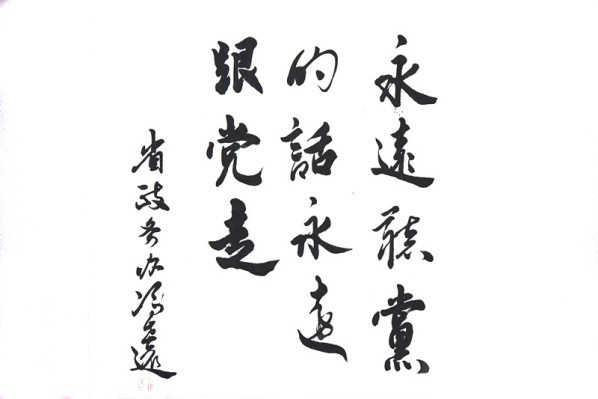 永遠聽黨
的話永遠
跟党走
省政务办冯遠